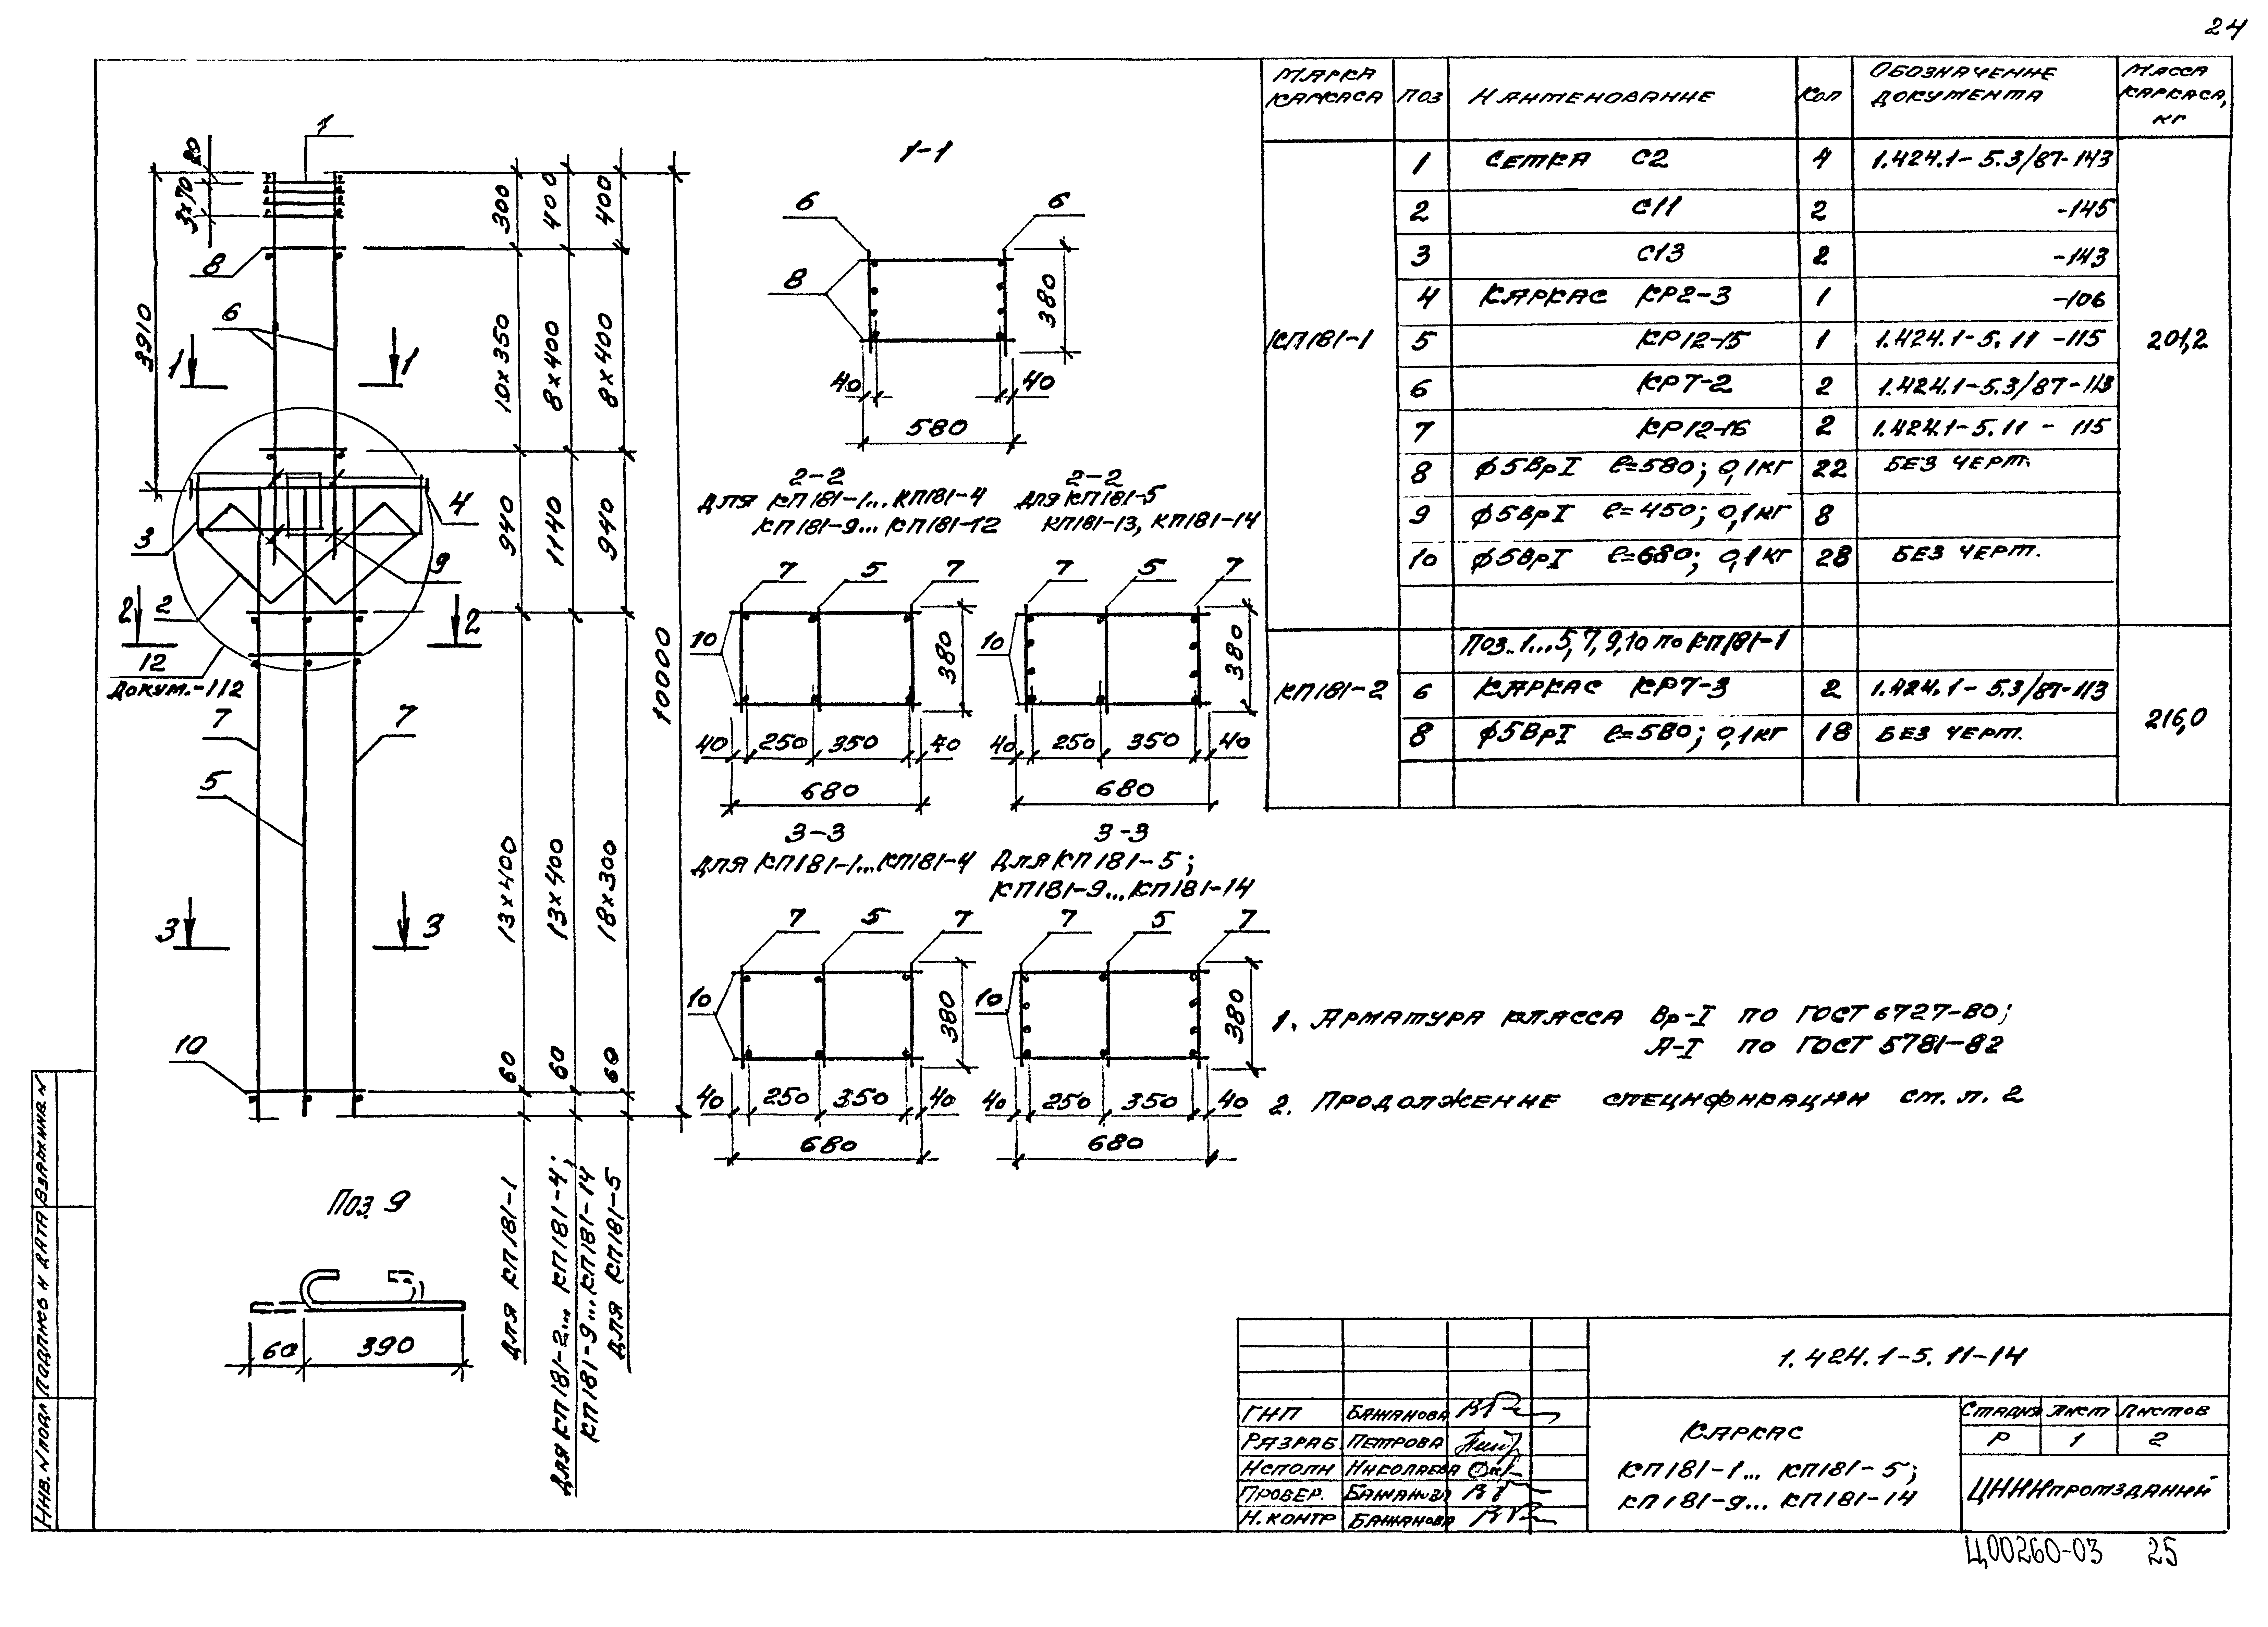 24
МАРКА КАРКАСА ПОЗ НАИМЕНОВАНИЕ КОЛ ОБОЗНАЧЕНИЕ ДОКУМЕНТА МАССА КАРКАСА, КГ
КП181-1 201,2
1 СЕТКА С2 4 1.424.1-5.3/87-143
2 С11 2 -145
3 С13 2 -143
4 КАРКАС КР2-3 1 -106
5 КР12-15 1 1.424.1-5.11-115
6 КР7-2 2 1.424.1-5.3/87-113
7 КР12-16 2 1.424.1-5.11-115
8 ф5ВрI ℓ=580; 0,1кг 22 БЕЗ ЧЕРТ.
9 ф5ВрI ℓ=450; 0,1кг 8
10 ф5ВрI ℓ=680; 0,1кг 28 БЕЗ ЧЕРТ.
КП181-2 216,0
Поз. 1...5, 7, 9, 10 по КП181-1
6 КАРКАС КР7-3 2 1.424.1-5.3/87-113
8 ф5ВрI ℓ=580; 0,1кг 18 БЕЗ ЧЕРТ.
1
3×70
3910
8
6
1 1
3
4
9
2 2 2
12
Докум.-112
7 7
5
3 3
10
300 400 400
10×350 8×400 8×400
940 1140 940
13×400 13×400 18×300
60 60 60
10000
Для КП181-1
Для КП181-2... КП181-4;
КП181-9...КП181-14
Для КП181-5
1-1
6 6
8
380
40 40
580
2-2
Для КП181-1... КП181-4
КП181-9... КП181-12
7 5 7
10
380
40 250 350 40
680
2-2
Для КП181-5
КП181-13, КП181-14
7 5 7
10
380
40 250 350 40
680
3-3
Для КП181-1...КП181-4
7 5 7
10
380
40 250 350 40
680
3-3
Для КП181-5;
КП181-9...КП181-14
7 5 7
10
380
40 250 350 40
680
Поз. 9
60 390
1. АРМАТУРА КЛАССА Вр-I ПО ГОСТ 6727-80;
А-I ПО ГОСТ 5781-82
2. ПРОДОЛЖЕНИЕ СПЕЦИФИКАЦИИ СТ. Л. 2
1.424.1-5.11-14
ГИП БАЖАНОВА
РАЗРАБ. ПЕТРОВА
ИСПОЛН НИКОЛАЕВА
ПРОВЕР. БАЖАНОВА
Н.КОНТР БАЖАНОВА
КАРКАС
КП181-1... КП181-5;
КП181-9... КП181-14
СТАДИЯ ЛИСТ ЛИСТОВ
Р 1 2
ЦНИИПРОМЗДАНИЙ
ИНВ. N ПОДЛ ПОДПИСЬ И ДАТА ВЗАМ.ИНВ. N
Ц00260-03 25